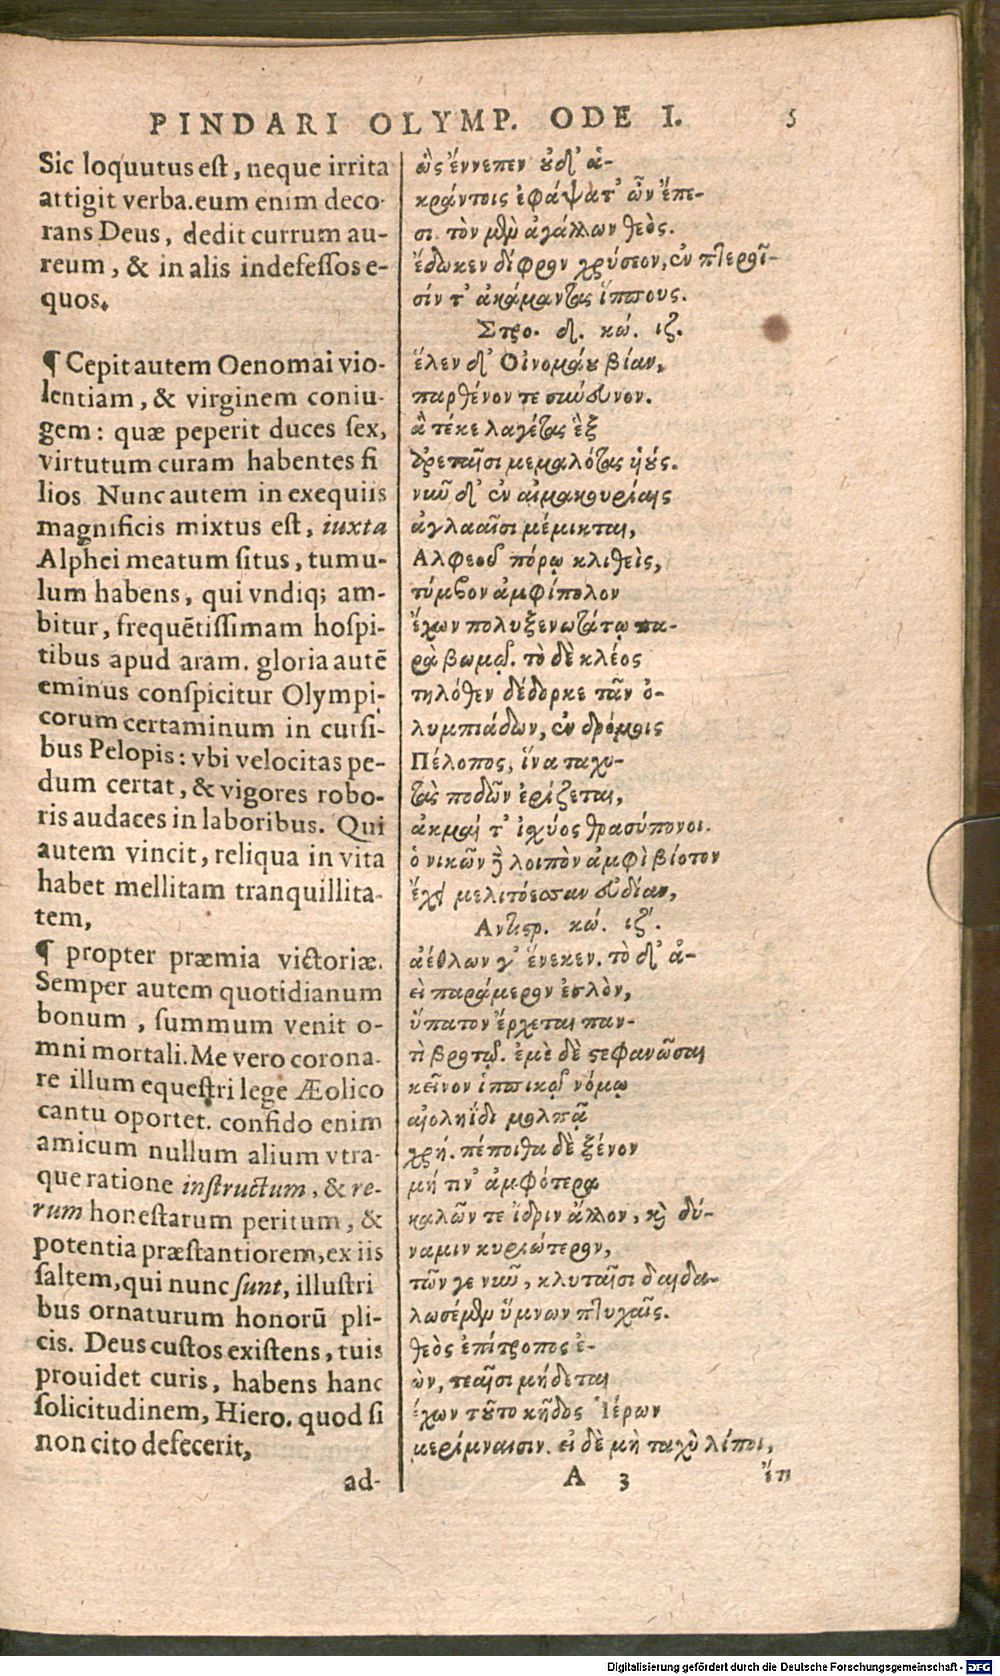 PINDARI OLYMP. ODE I. 5
Sic loquutus est, neque irrita
attigit verba. eum enim deco-
rans Deus, dedit currum au-
reum, & in alis indefessos e-
quos.
¶ Cepit autem Oenomai vio-
lentiam, & virginem coniu-
gem: quæ peperit duces sex,
virtutum curam habentes fi
lios. Nunc autem in exequiis
magnificis mixtus est, iuxta
Alphei meatum situs, tumu-
lum habens, qui vndiq; am-
bitur, frequētissimam hospi-
tibus apud aram. gloria autē
eminus conspicitur Olympi-
corum certaminum in cursi-
bus Pelopis: vbi velocitas pe-
dum certat, & vigores robo-
ris audaces in laboribus. Qui
autem vincit, reliqua in vita
habet mellitam tranquillita-
tem,
¶ propter præmia victoriæ.
Semper autem quotidianum
bonum, summum venit o-
mni mortali. Me vero corona-
re illum equestri lege Æolico
cantu oportet. confido enim
amicum nullum alium vtra-
que ratione instructum, & re-
rum honestarum peritum, &
potentia præstantiorem, ex iis
saltem, qui nunc sunt, illustri
bus ornaturum honorū pli-
cis. Deus custos existens, tuis
prouidet curis, habens hanc
solicitudinem, Hiero. quod si
non cito defecerit,
ad-
ὣς ἔννεπεν οὐδ' ἀ-
κράντοις ἐφάψατ' ὦν ἔπε-
σι. τὸν μὲν ἀγάλλων θεὸς.
ἔδωκεν δίφρον χρύσεον, ἐν πτεροῖ-
σίν τ' ἀκάμαντας ἵππους.
Στρο. δ. κώ. ιζ.
ἕλεν δ' Οἰνομάου βίαν,
παρθένον τε σύνευνον.
ἃ τέκε λαγέτας ἓξ
ἀρεταῖσι μεμαλότας υἱούς.
νῦν δ' ἐν αἱμακουρίαις
ἀγλααῖσι μέμικται,
Αλφεοῦ πόρῳ κλιθεὶς,
τύμβον ἀμφίπολον
ἔχων πολυξενωτάτῳ πα-
ρὰ βωμῷ. τὸ δὲ κλέος
τηλόθεν δέδορκε τᾶν ὀ-
λυμπιάδων, ἐν δρόμοις
Πέλοπος, ἵνα ταχυ-
τὰς ποδῶν ἐρίζεται,
ἀκμαί τ' ἰσχύος θρασύπονοι.
ὁ νικῶν δὲ λοιπὸν ἀμφὶ βίοτον
ἔχει μελιτόεσσαν εὐδίαν,
Αντιστρ. κώ. ιζ'.
ἀέθλων γ' ἕνεκεν. τὸ δ' ἀ-
εὶ παράμερον ἐσλὸν,
ὕπατον ἔρχεται παν-
τὶ βροτῷ. ἐμὲ δὲ στεφανῶσαι
κεῖνον ἱππικῷ νόμῳ
αἰοληΐδι μολπᾷ
χρή. πέποιθα δὲ ξένον
μή τιν' ἀμφότερα
καλῶν τε ἴδριν ἄλλον, καὶ δύ-
ναμιν κυριώτερον,
τῶν γε νῦν, κλυταῖσι δαιδα-
λωσέμεν ὕμνων πτυχαῖς.
θεὸς ἐπίτροπος ἐ-
ὼν, τεαῖσι μήδεται
ἔχων τοῦτο κῆδος Ἱέρων
μερίμναισιν. εἰ δὲ μὴ ταχὺ λίποι,
A 3 ἔτι
Digitalisierung gefördert durch die Deutsche Forschungsgemeinschaft - DFG